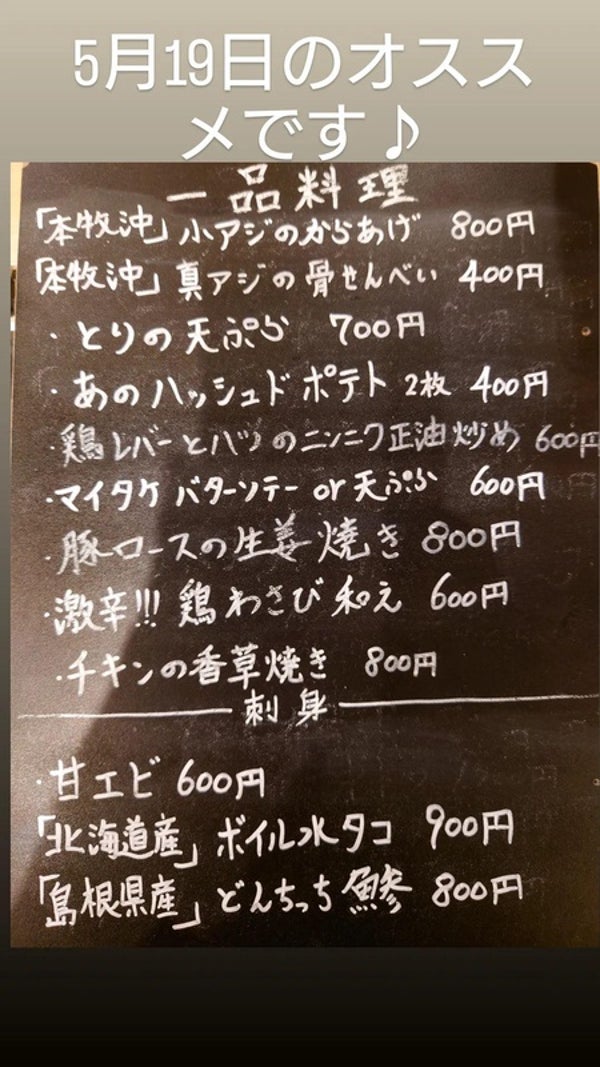 5月19日のオスス
メです♪
一品料理
「本牧沖」小アジのからあげ 800円
「本牧沖」真アジの骨せんべい 400円
・とりの天ぷら 700円
・あのハッシュドポテト 2枚 400円
・鶏レバーとハツのニンニク正油炒め 600円
・マイタケバターソテー or 天ぷら 600円
・豚ロースの生姜焼き 800円
・激辛!!! 鶏わさび和え 600円
・チキンの香草焼き 800円
刺身
・甘エビ 600円
「北海道産」ボイル水タコ 900円
「島根県産」どんちっち鰺 800円